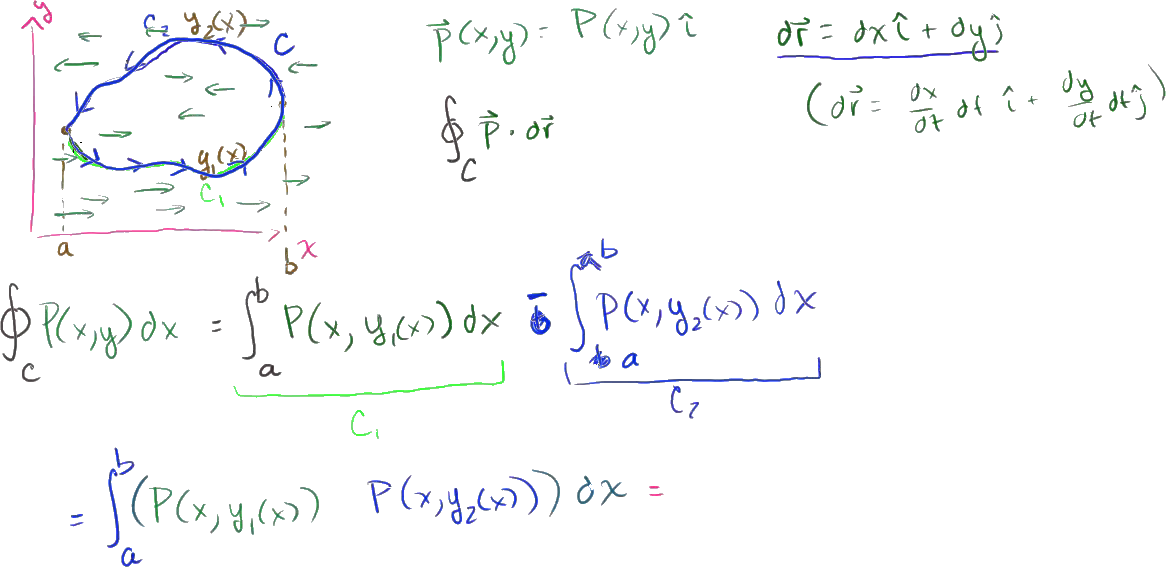 y
C₂ y₂(x) C
y₁(x)
C₁
a b x
p⃗(x,y) = P(x,y) î
∮_C p⃗ · dr⃗
dr⃗ = dx î + dy ĵ
(dr⃗ = dx/dt dt î + dy/dt dt ĵ)
∮_C P(x,y) dx = ∫_a^b P(x, y₁(x)) dx - ∫_a^b P(x, y₂(x)) dx
C₁ C₂
= ∫_a^b (P(x, y₁(x)) P(x, y₂(x))) dx =